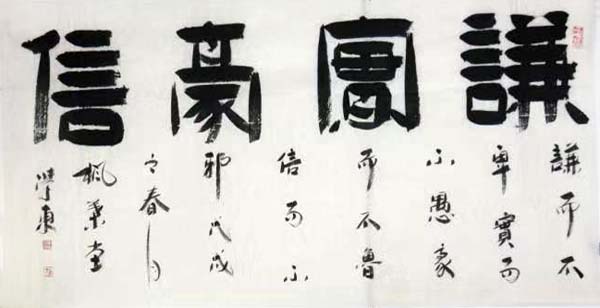 謙實豪信
謙而不
卑實而
不愚豪
而不魯
信而不
邪戊戌
之春月
楓葉堂
學東